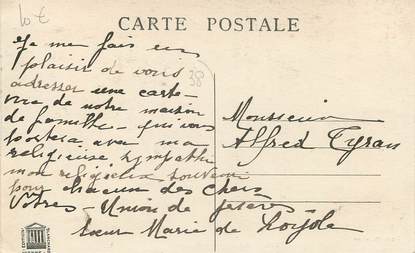 CARTE POSTALE
Je me fais un
plaisir de vous
adresser une carte-
vue de notre maison
de famille - qui vous
portera avec ma
religieuse sympathie
mon religieux souvenir
pour chacun des chers
Vôtres - Union de prières
Sœur Marie de Loyola
38
Monsieur
Alfred Tyran